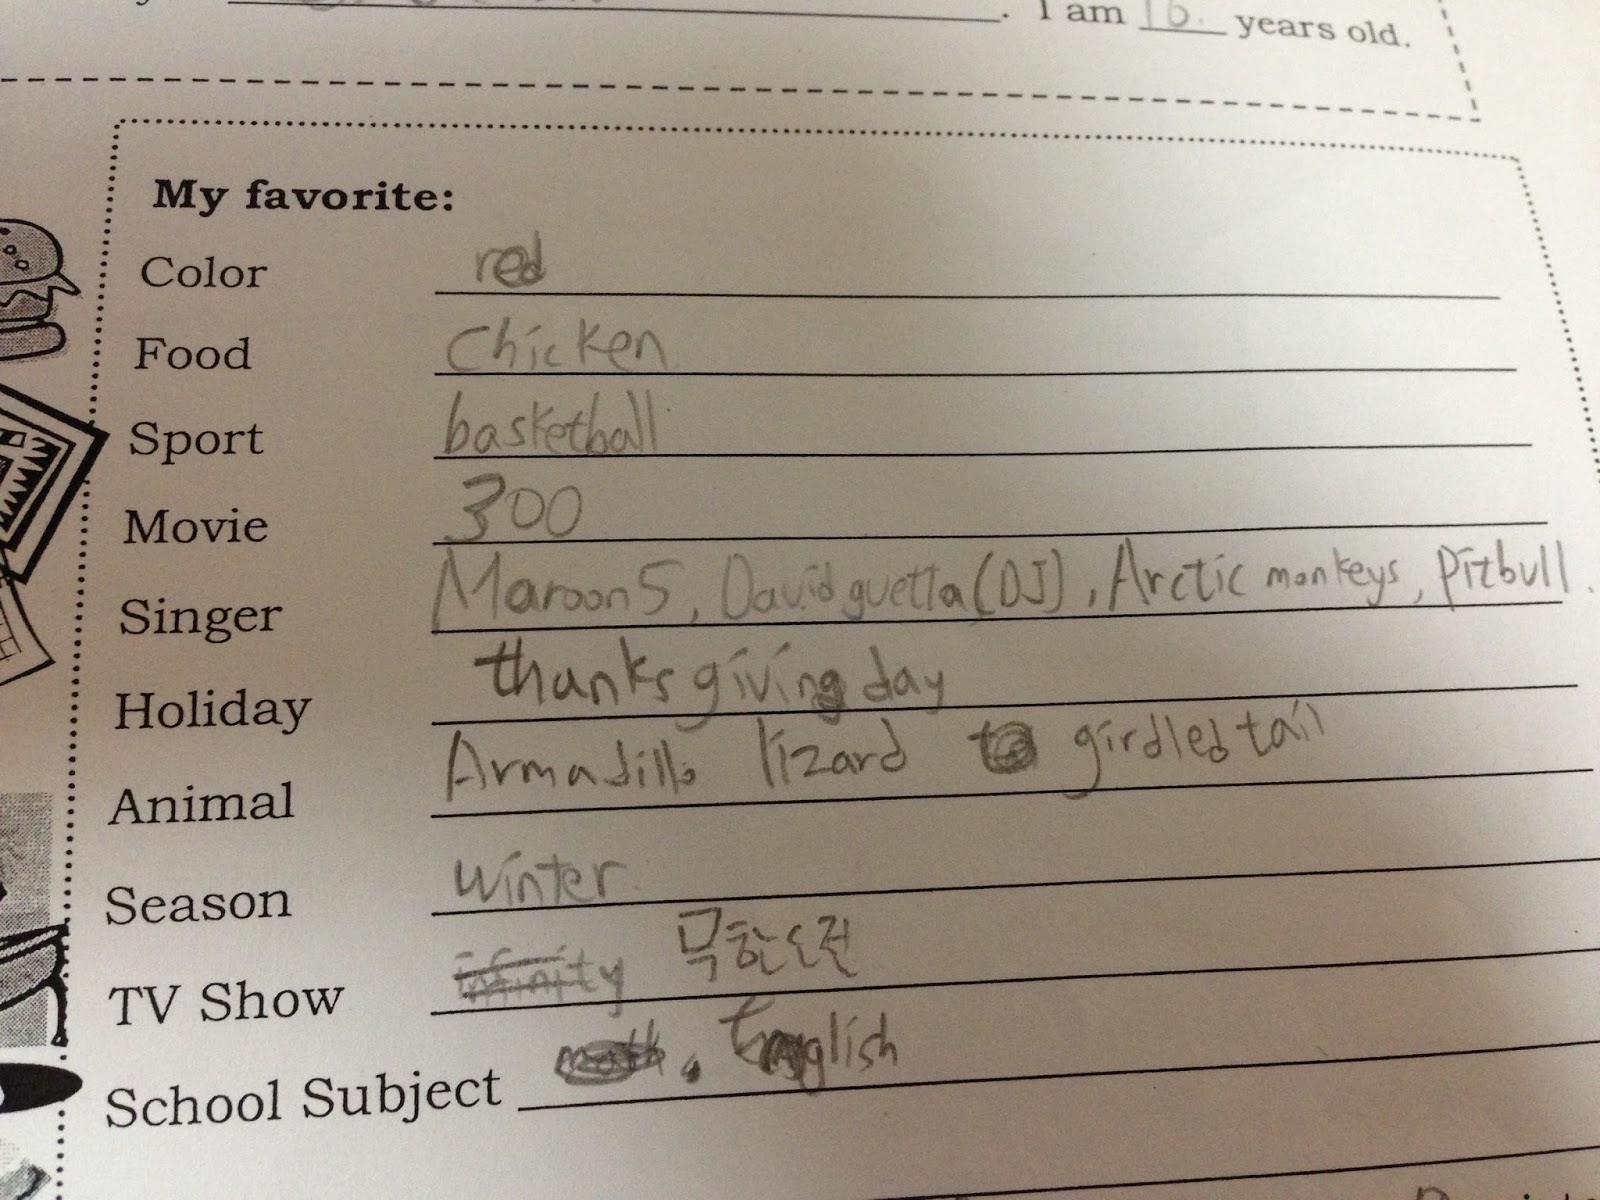 . I am 16. years old.
My favorite:
Color red
Food Chicken
Sport basketball
Movie 300
Singer Maroon5, David guetta(DJ), Arctic monkeys, Pitbull.
Holiday thanks giving day
Animal Armadillo lizard girdled tail
Season winter.
TV Show infinity 무한도전
School Subject math, English